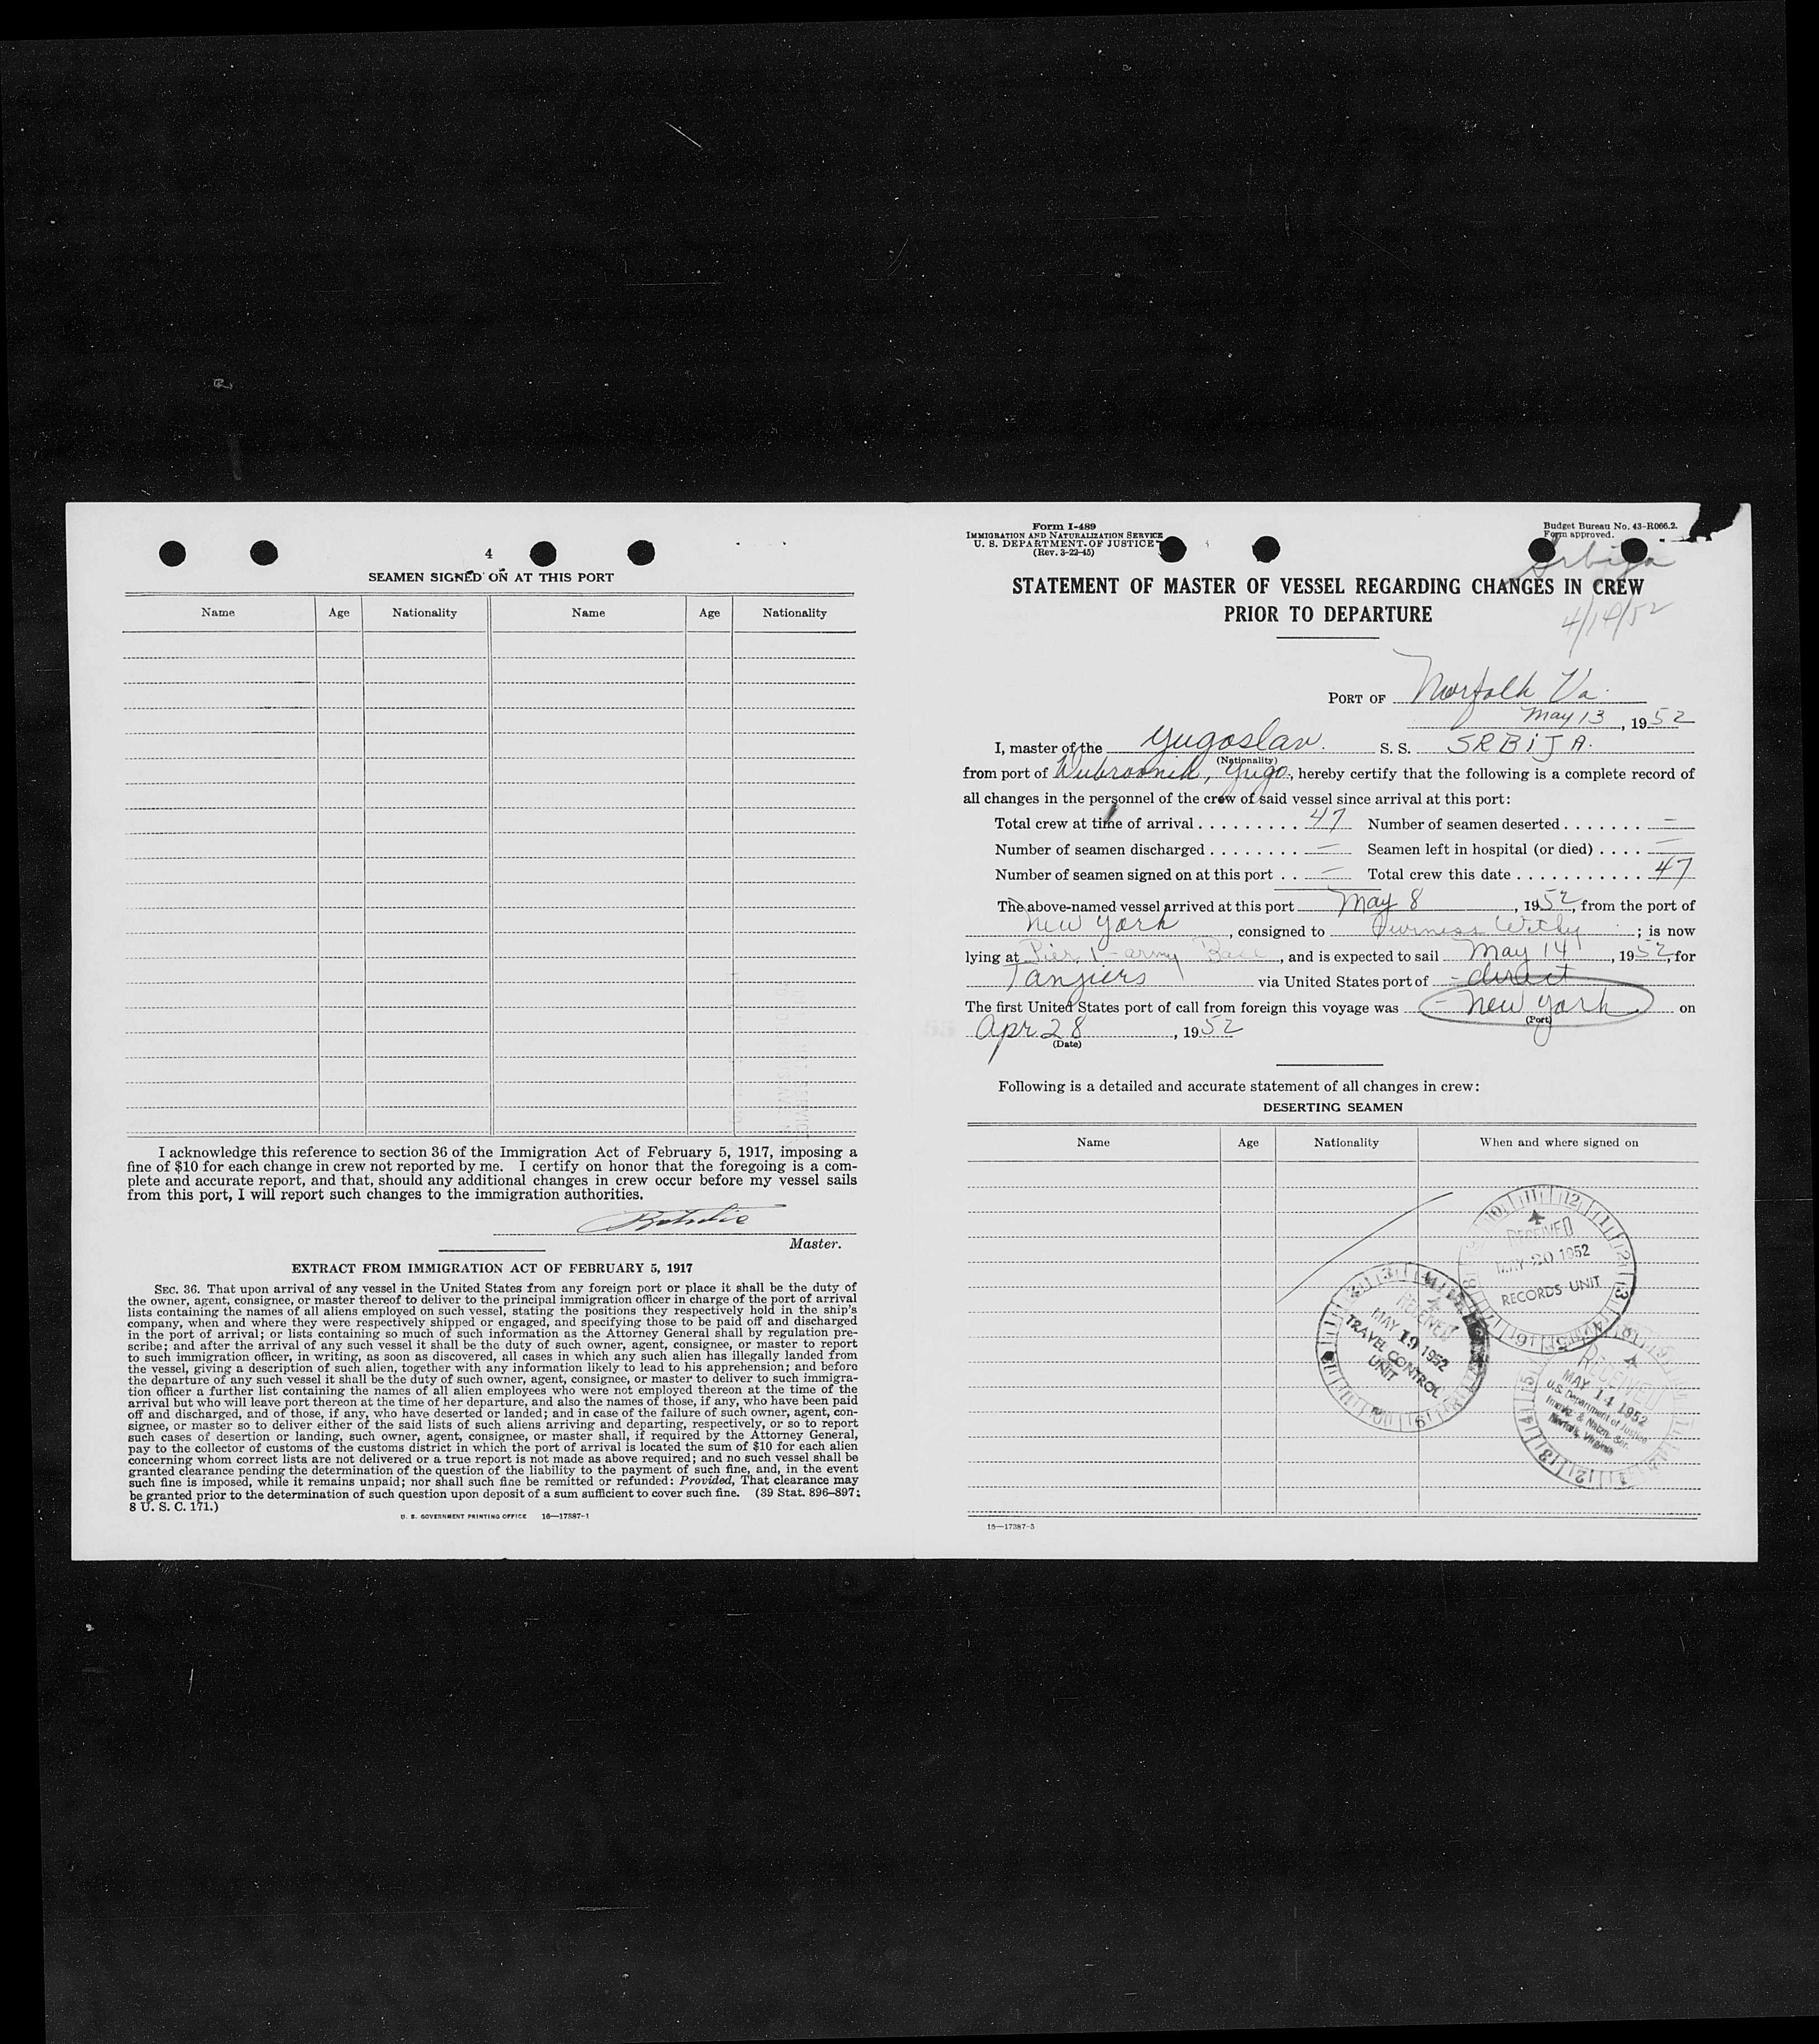 4
SEAMEN SIGNED ON AT THIS PORT
Name Age Nationality Name Age Nationality
I acknowledge this reference to section 36 of the Immigration Act of February 5, 1917, imposing a
fine of $10 for each change in crew not reported by me. I certify on honor that the foregoing is a com-
plete and accurate report, and that, should any additional changes in crew occur before my vessel sails
from this port, I will report such changes to the immigration authorities.
Master.
EXTRACT FROM IMMIGRATION ACT OF FEBRUARY 5, 1917
SEC. 36. That upon arrival of any vessel in the United States from any foreign port or place it shall be the duty of
the owner, agent, consignee, or master thereof to deliver to the principal immigration officer in charge of the port of arrival
lists containing the names of all aliens employed on such vessel, stating the positions they respectively hold in the ship's
company, when and where they were respectively shipped or engaged, and specifying those to be paid off and discharged
in the port of arrival; or lists containing so much of such information as the Attorney General shall by regulation pre-
scribe; and after the arrival of any such vessel it shall be the duty of such owner, agent, consignee, or master to report
to such immigration officer, in writing, as soon as discovered, all cases in which any such alien has illegally landed from
the vessel, giving a description of such alien, together with any information likely to lead to his apprehension; and before
the departure of any such vessel it shall be the duty of such owner, agent, consignee, or master to deliver to such immigra-
tion officer a further list containing the names of all alien employees who were not employed thereon at the time of the
arrival but who will leave port thereon at the time of her departure, and also the names of those, if any, who have been paid
off and discharged, and of those, if any, who have deserted or landed; and in case of the failure of such owner, agent, con-
signee, or master so to deliver either of the said lists of such aliens arriving and departing, respectively, or so to report
such cases of desertion or landing, such owner, agent, consignee, or master shall, if required by the Attorney General,
pay to the collector of customs of the customs district in which the port of arrival is located the sum of $10 for each alien
concerning whom correct lists are not delivered or a true report is not made as above required; and no such vessel shall be
granted clearance pending the determination of the question of the liability to the payment of such fine, and, in the event
such fine is imposed, while it remains unpaid; nor shall such fine be remitted or refunded: Provided, That clearance may
be granted prior to the determination of such question upon deposit of a sum sufficient to cover such fine. (39 Stat. 896–897;
8 U. S. C. 171.)
U. S. GOVERNMENT PRINTING OFFICE 16—17387-1
Form I-489
IMMIGRATION AND NATURALIZATION SERVICE
U. S. DEPARTMENT OF JUSTICE
(Rev. 3-22-45)
Budget Bureau No. 43-R066.2.
Form approved.
Srbija
4/14/52
STATEMENT OF MASTER OF VESSEL REGARDING CHANGES IN CREW
PRIOR TO DEPARTURE
PORT OF Norfolk Va.
May 13, 1952
I, master of the Yugoslav. S. S. SRBIJA.
(Nationality)
from port of Dubrovnik, Yugo., hereby certify that the following is a complete record of
all changes in the personnel of the crew of said vessel since arrival at this port:
Total crew at time of arrival ......... 47 Number of seamen deserted ....... —
Number of seamen discharged ........ — Seamen left in hospital (or died) .... —
Number of seamen signed on at this port .. — Total crew this date ........... 47
The above-named vessel arrived at this port May 8, 1952, from the port of
New York, consigned to Furness Withy; is now
lying at Pier 1 - army Base, and is expected to sail May 14, 1952, for
Tangiers via United States port of - direct
The first United States port of call from foreign this voyage was - New York on
(Port)
Apr 28, 1952
(Date)
Following is a detailed and accurate statement of all changes in crew:
DESERTING SEAMEN
Name Age Nationality When and where signed on
RECEIVED
MAY 20 1952
RECORDS UNIT
RECEIVED
MAY 19 1952
TRAVEL CONTROL
UNIT
RECEIVED
MAY 14 1952
U.S. Department of Justice
Immig. & Natzn. Ser.
Norfolk, Virginia
16—17387-5